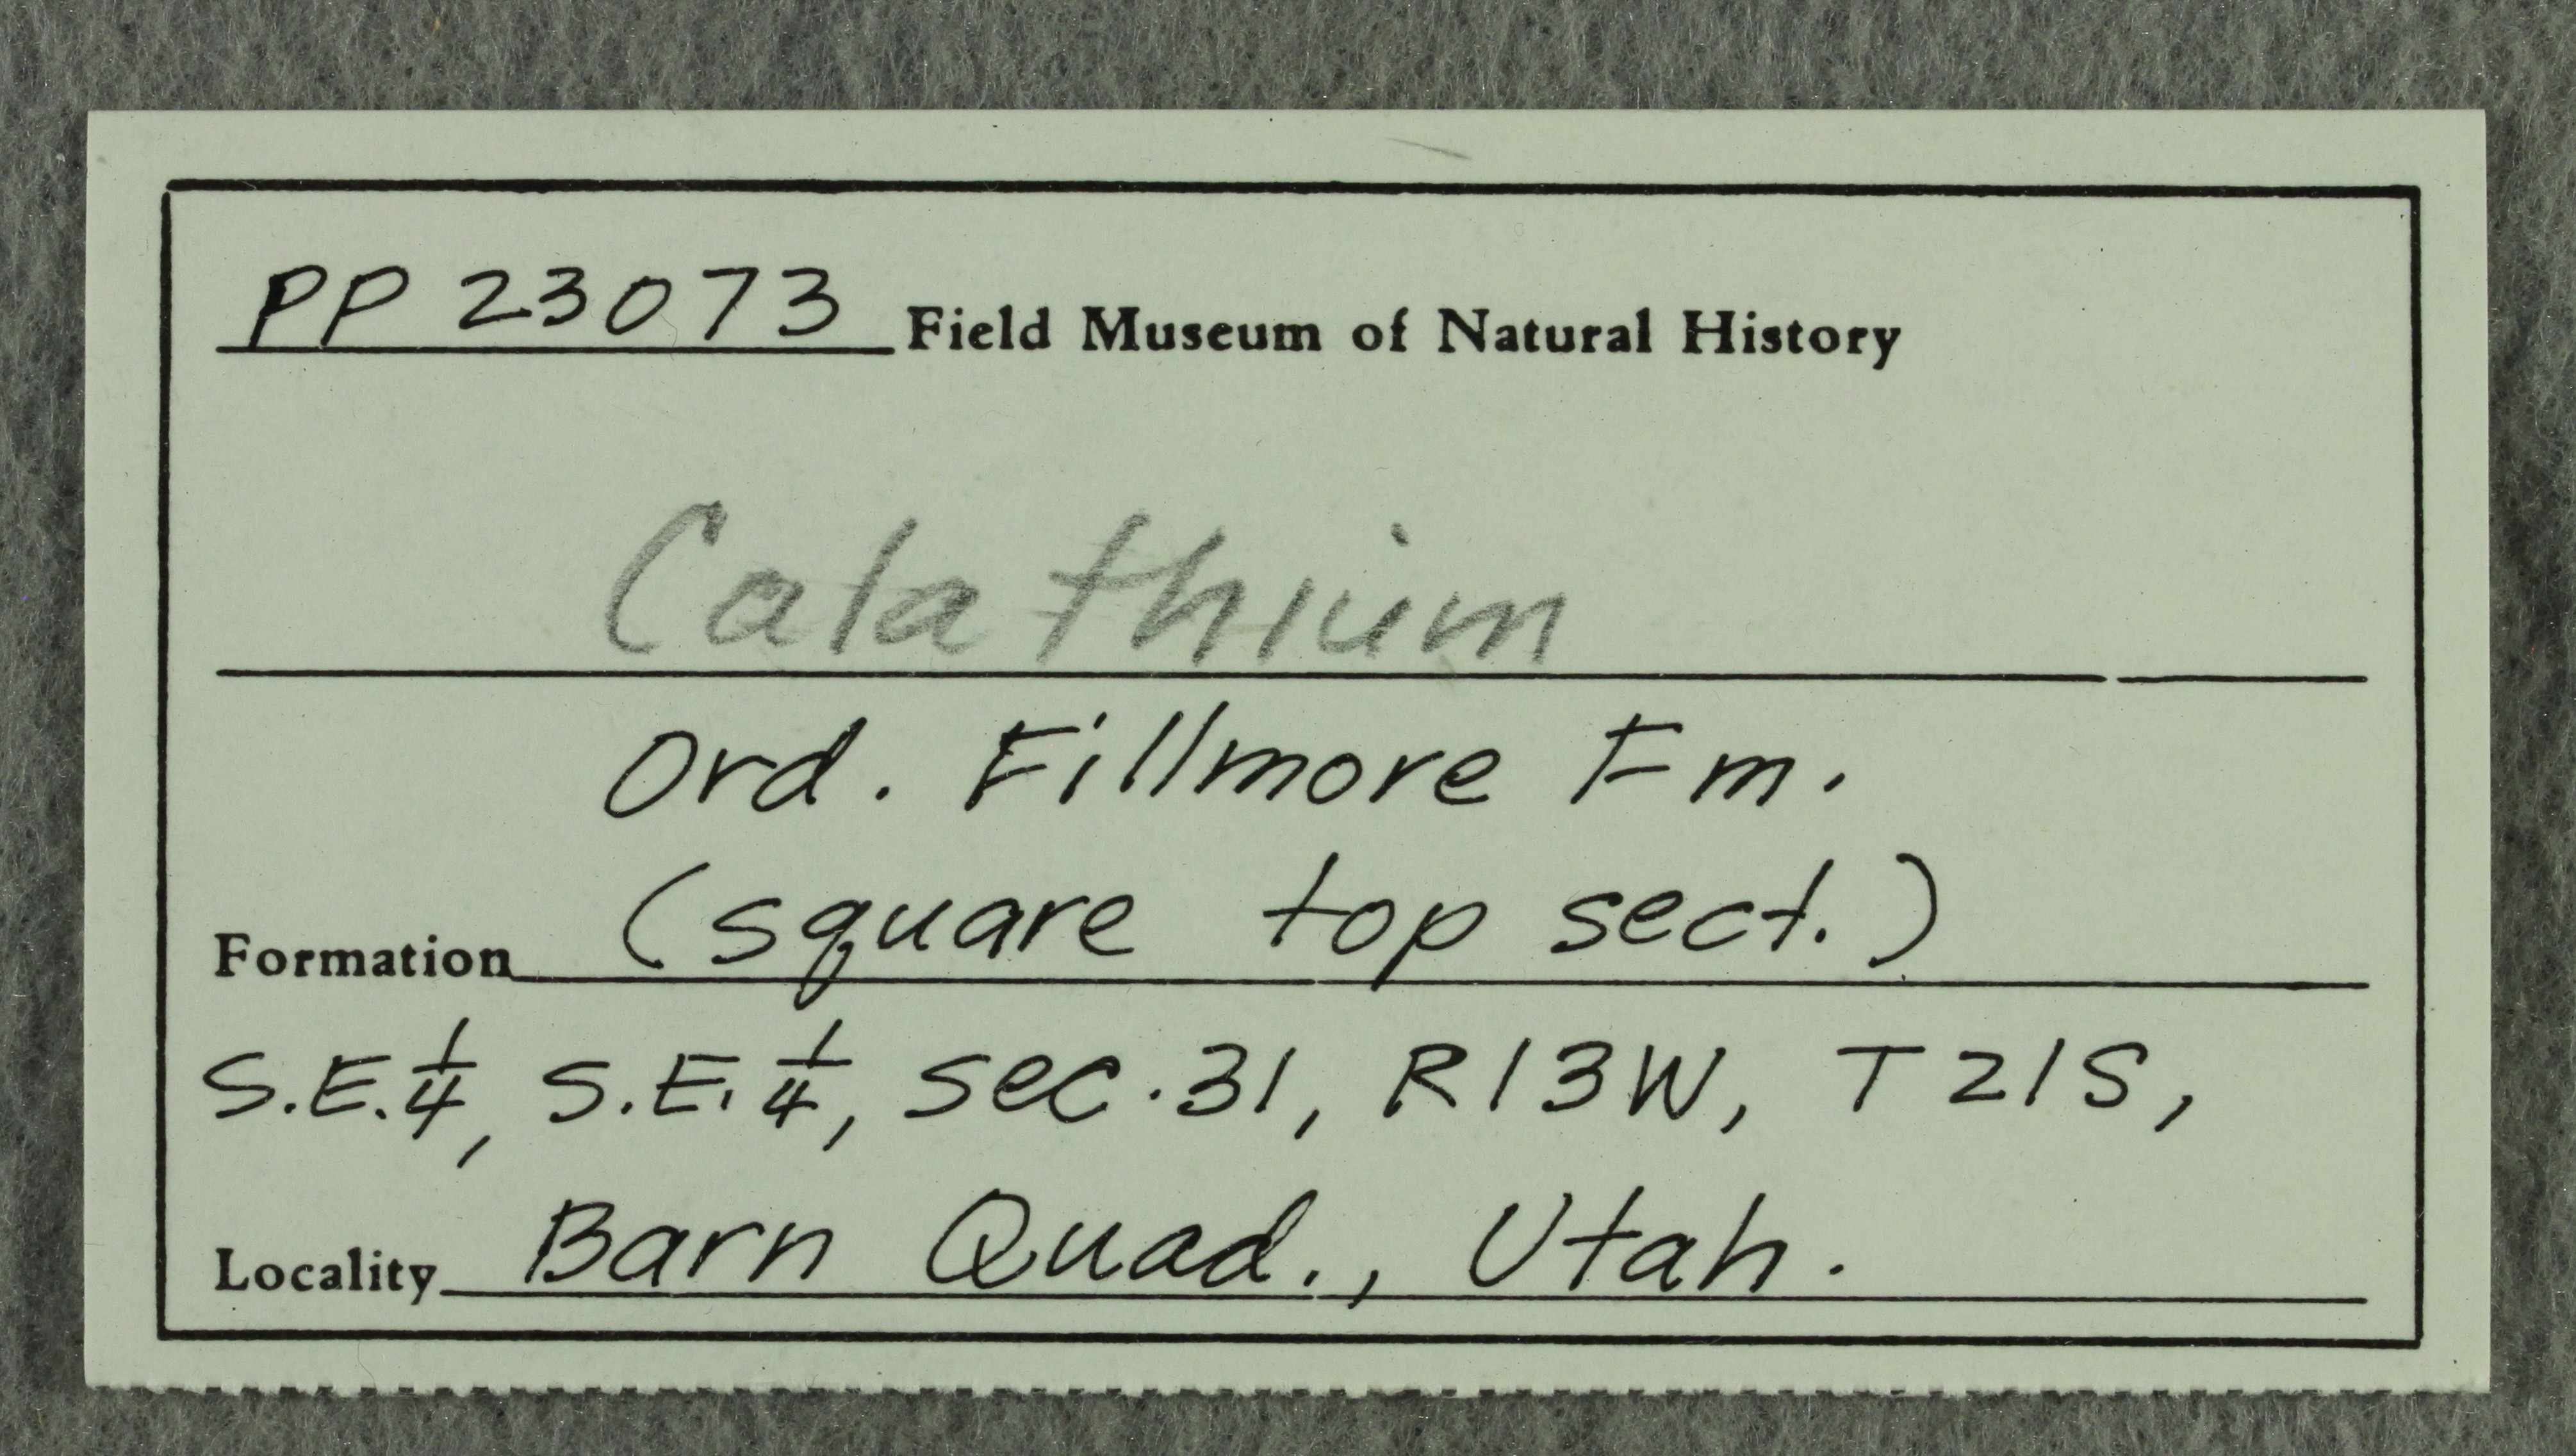 PP 23073 Field Museum of Natural History
Calathium
Ord. Fillmore Fm.
Formation (square top sect.)
S.E. 1/4, S.E. 1/4, sec. 31, R13W, T21S,
Locality Barn Quad., Utah.